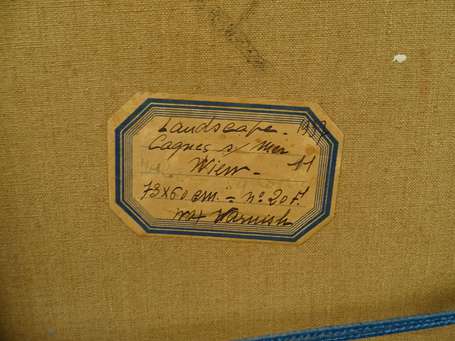 Landscape. 1957
Cagnes s/ Mer
View - 11
73 x 60 cm. = no. 20 F.
wax varnish